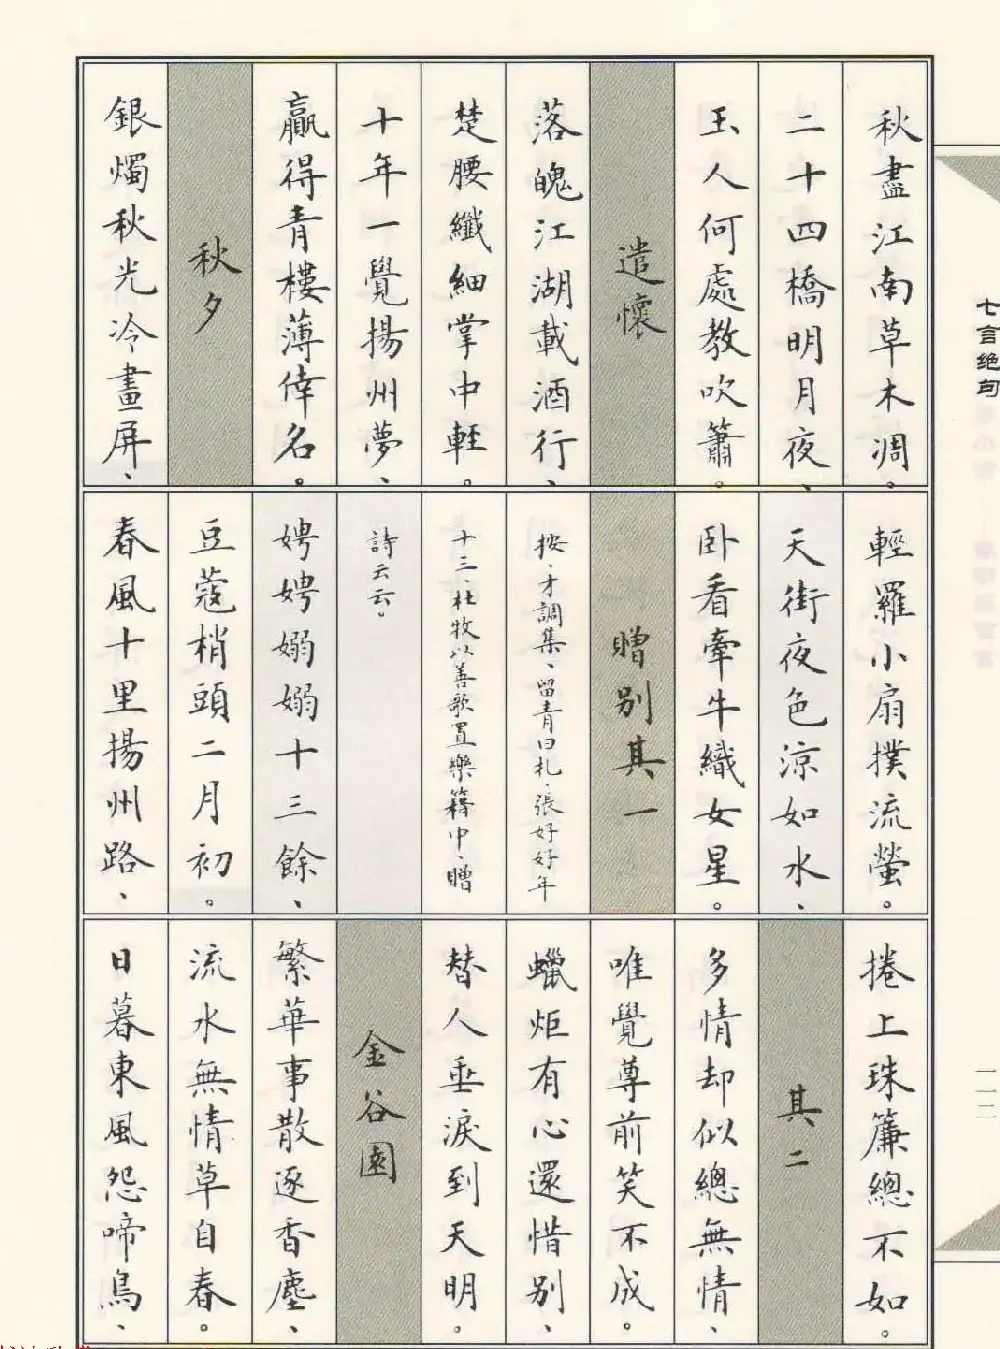 七言绝句
秋盡江南草木凋。
二十四橋明月夜、
玉人何處教吹簫。
遣懷
落魄江湖載酒行、
楚腰纖細掌中輕。
十年一覺揚州夢、
贏得青樓薄倖名。
秋夕
銀燭秋光冷畫屏、
輕羅小扇撲流螢。
天街夜色涼如水、
卧看牽牛織女星。
贈别其一
按、才調集、留青日札、張好好年
十三、杜牧以善歌置樂籍中、贈
詩云云。
娉娉嫋嫋十三餘、
豆蔻梢頭二月初。
春風十里揚州路、
捲上珠簾總不如。
其二
多情却似總無情、
唯覺尊前笑不成。
蠟炬有心還惜别、
替人垂淚到天明。
金谷園
繁華事散逐香塵、
流水無情草自春。
日暮東風怨啼鳥、